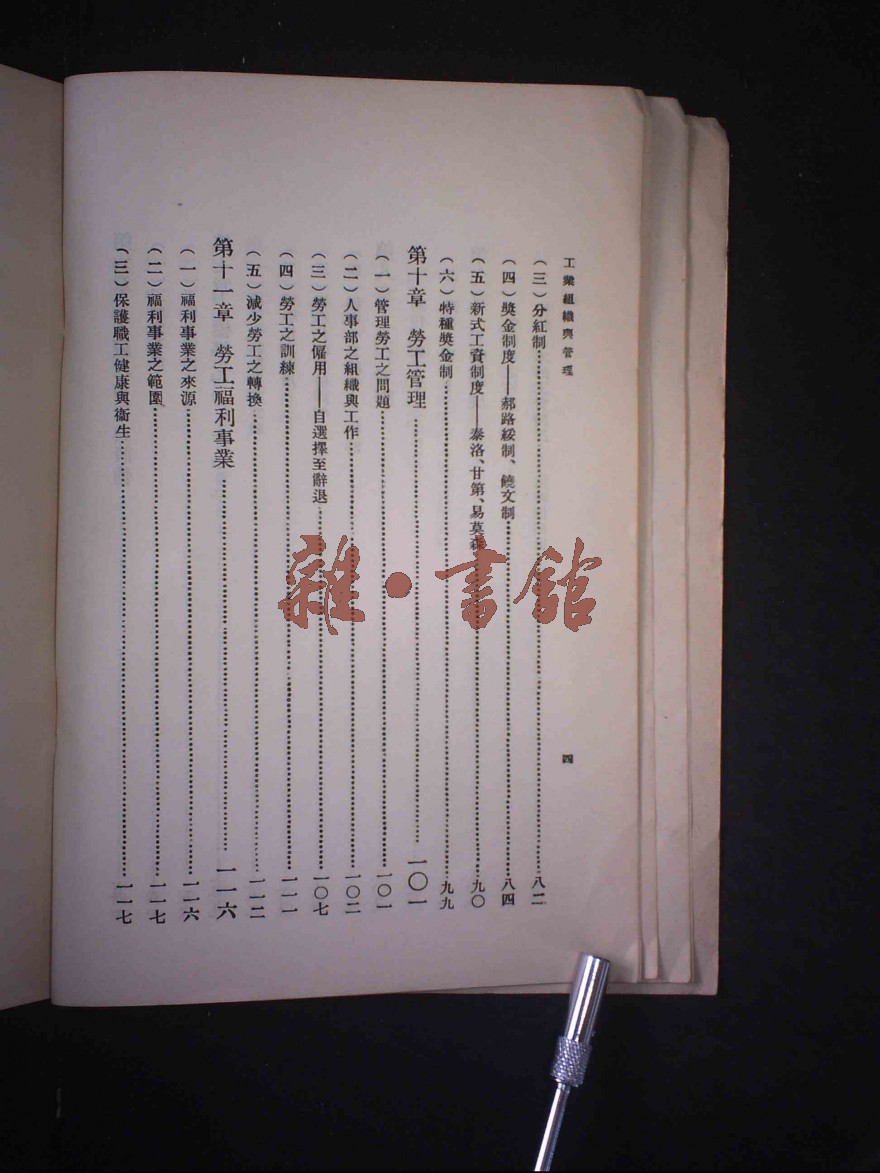 工業組織與管理
四
（三）分紅制……八二
（四）獎金制度——郝路綏制、饒文制……八四
（五）新式工資制度——泰洛、甘第、易莫森……九〇
（六）特種獎金制……九九
第十章　勞工管理……一〇一
（一）管理勞工之問題……一〇一
（二）人事部之組織與工作……一〇二
（三）勞工之僱用——自選擇至辭退……一〇七
（四）勞工之訓練……一一一
（五）減少勞工之轉換……一一二
第十一章　勞工福利事業……一一六
（一）福利事業之來源……一一六
（二）福利事業之範圍……一一七
（三）保護職工健康與衞生……一一七
雜·書館